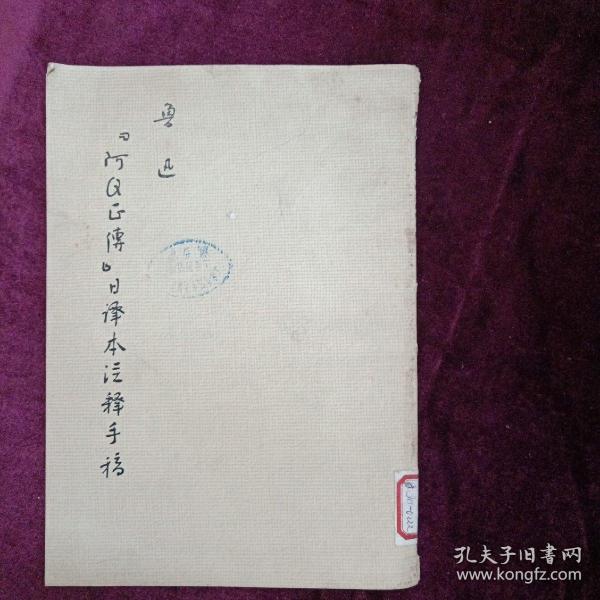 魯迅
『阿Q正傳』日译本注释手稿
孔夫子旧书网
www.kongfz.com